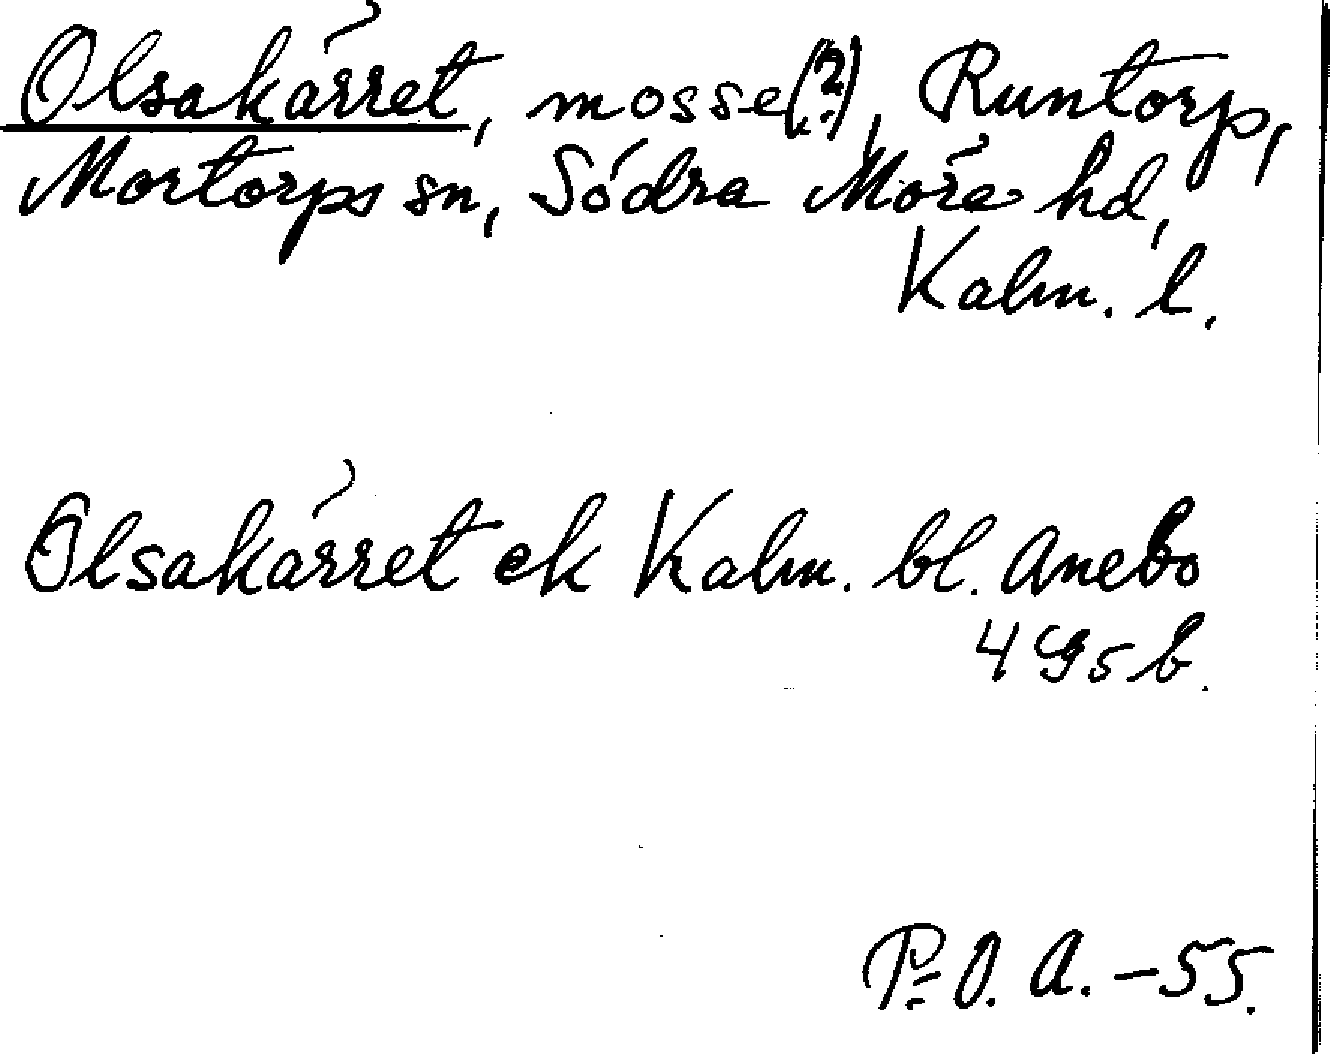 Olsakärret, mosse(?), Runtorp,
Mortorps sn, Södra Möre hd,
Kalm. l.
Olsakärret ek Kalm. bl. Anebo
4 G5 b.
P. O. A. - 55.